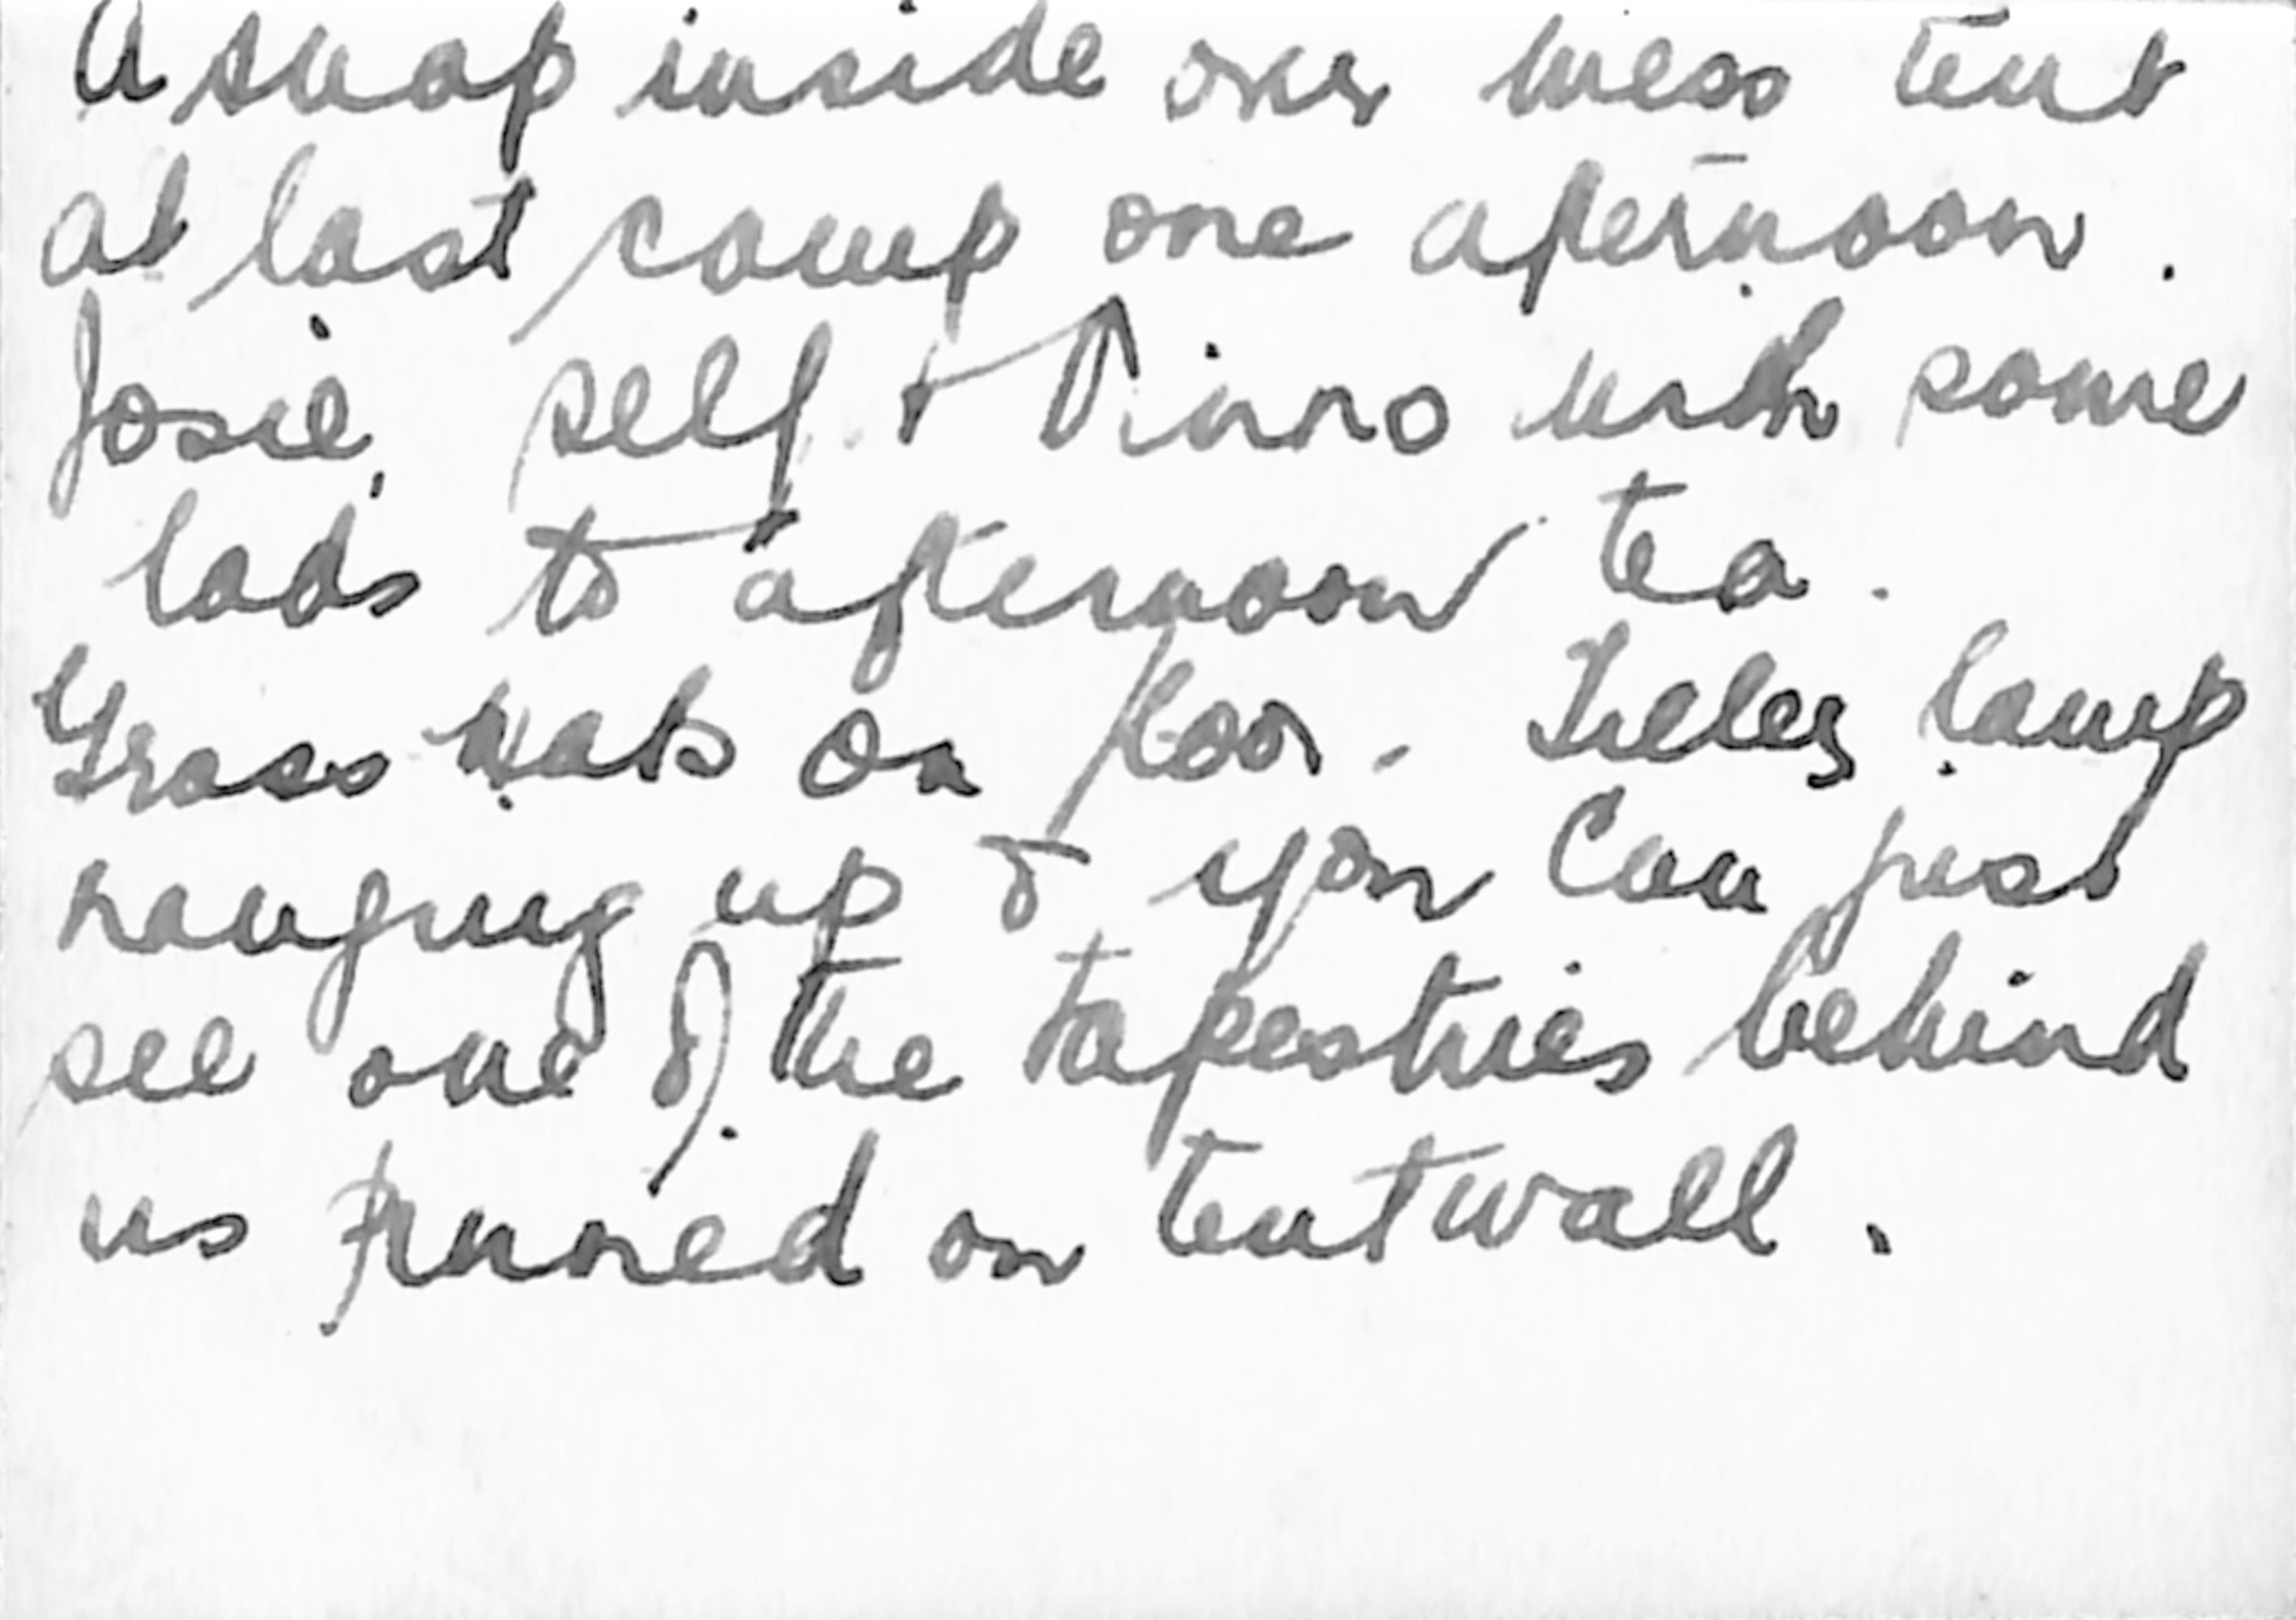 A snap inside our mess tent
at last camp one afternoon.
Josie, self & with some
lads to afternoon tea.
Grass mats on floor. Tilley lamp
hanging up & you can just
see one of the tapestries behind
us pinned on tent wall.